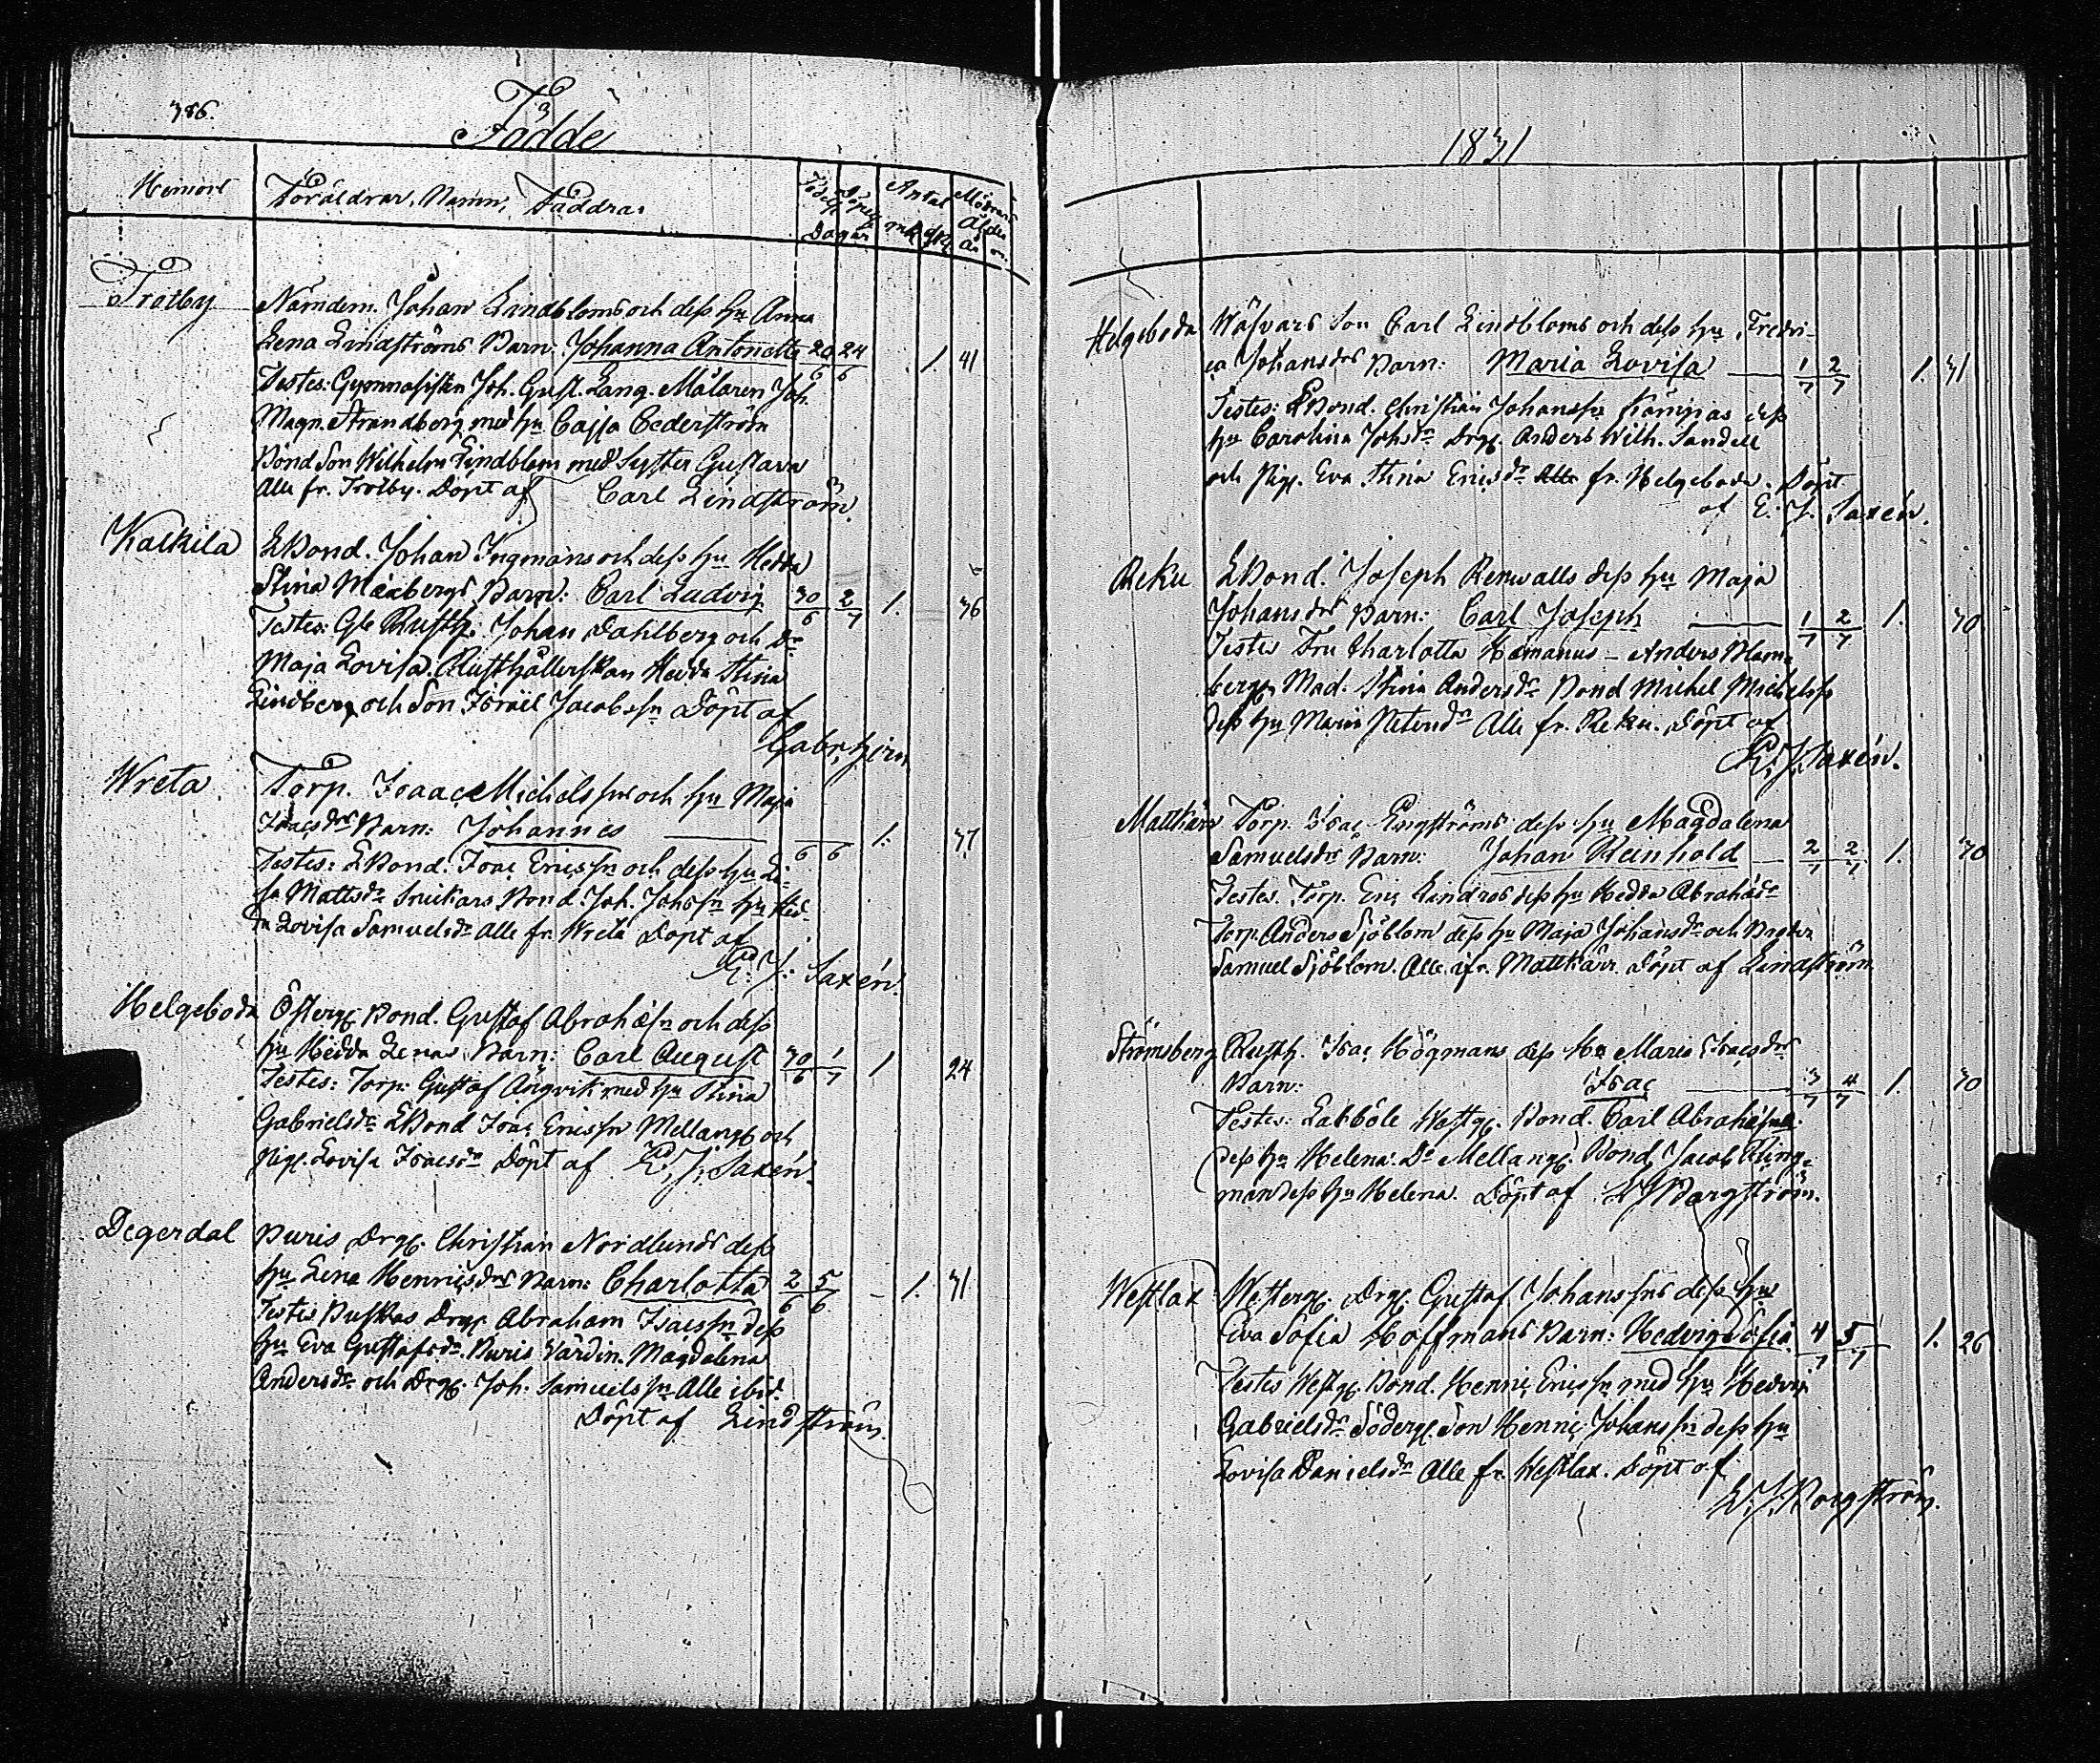 386.
Födde
Hemort Föräldrar, Namn, Faddrar Födelse Döpelse Dagar Antal mk qk Mödrars Ålder år
Trotby
Nämdem. Johan Lindbloms och dess hu Anna
Lena Lindströms Barn: Johanna Antonette 20/6 24/6 1. 41
Testes: Gymnasisten Joh. Gust. Lang. Målaren Joh.
Magn. Strandberg med hu Cajsa Cederström
Bond Son Wilhelm Lindblom med Syster Gustava
Alle fr. Trotby. Döpt af Carl Lindström.
Kalkila
LBond. Johan Ingmans och dess hu Hedda
Stina Maxbergs Barn: Carl Ludvig 30/6 2/7 1. 36
Testes: Gle Rusth. Johan Dahlberg och Dr
Maja Lovisa. Rusthållerskan Hedda Stina
Lindberg och Son Israël Jacobsn Döpt af
Gabr.
Wreta
Torp. Isaac Michelssns och hu Maja
Isacsdrs Barn: Johannes /6 /6 1. 37
Testes: LBond. Isac Ericssn och dess hu Li-
sa Mattsdr Snickars Bond Joh. Johssn hu Hed-
da Lovisa Samuelsdr Alle fr. Wreta Döpt af
E. J. Saxén.
Helgeboda
Österg. Bond. Gustaf Abrahssn och dess
hu Hedda Lenas Barn: Carl August 30/6 1/7 1 24
Testes: Torp. Gustaf Ängvik med hu Stina
Gabrielsdr LBond Isac Ericssn Mellang. och
Pig. Lovisa Isacsdr Döpt af E. J. Saxén.
Degerdal
Buris Drg. Christian Nordlunds dess
hu Lena Henricsdrs Barn: Charlotta 2/6 5/6 1. 31
Testes Buskas Drg. Abraham Isacssn dess
hu Eva Gustafsdr. Buris Värdin. Magdalena
Andersdr och Drg. Joh. Samuelssn Alle ibid.
Döpt af Lindström.
1831
Helgeboda
Wäfvars Son Carl Lindbloms och dess hu Fredri-
ca Johansdrs Barn: Maria Lovisa 1/7 2/7 1. 31
Testes: LBond. Christian Johanssn Kämpas dess
hu Carolina Johsdr Drg. Anders Wilh. Sandell
och Pig. Eva Stina Ericsdr Alle fr. Helgeboda. Döpt
af E. J. Saxén.
Reku
LBond. Joseph Renwalls dess hu Maja
Johansdrs Barn: Carl Joseph 1/7 2/7 1. 30
Testes Fru Charlotta Homanus - Anders Blom-
berg. Mad. Stina Andersdr Bond Michel Michelssn
dess hu Maria Petersdr Alle fr. Reku. Döpt af
E. J. Saxén.
Mattkärr
Torp. Isac Engströms dess hu Magdalena
Samuelsdrs Barn: Johan Reinhold 2/7 2/7 1. 30
Testes. Torp. Eric Lindros dess hu Hedda Abrahsdr
Torp. Anders Sjöblom dess hu Maja Johansdr och Broder
Samuel Sjöblom. Alle fr. Mattkärr. Döpt af Lindström
Strömsberg
Rusth. Isac Högmans dess Hu Maria Isacsdrs
Barn: Isac 3/7 4/7 1. 30
Testes: Labböle Westg. Bond. Carl Abrahssn
dess hu Helena. Do Mellang. Bond Jacob Kling-
man dess hu Helena. Döpt af Borgström.
Westlax
Westerg. Drg. Gustaf Johanssns dess hus
Eva Sofia Hoffmans Barn: Hedvig Sofia 4/7 5/7 1. 26
Testes Westg. Bond. Henric Ericssn med hu Hedvig
Gabrielsdr Söderg. Son Henric Johanssn dess hu
Lovisa Danielsdr Alle fr. Westlax. Döpt af
Borgström.